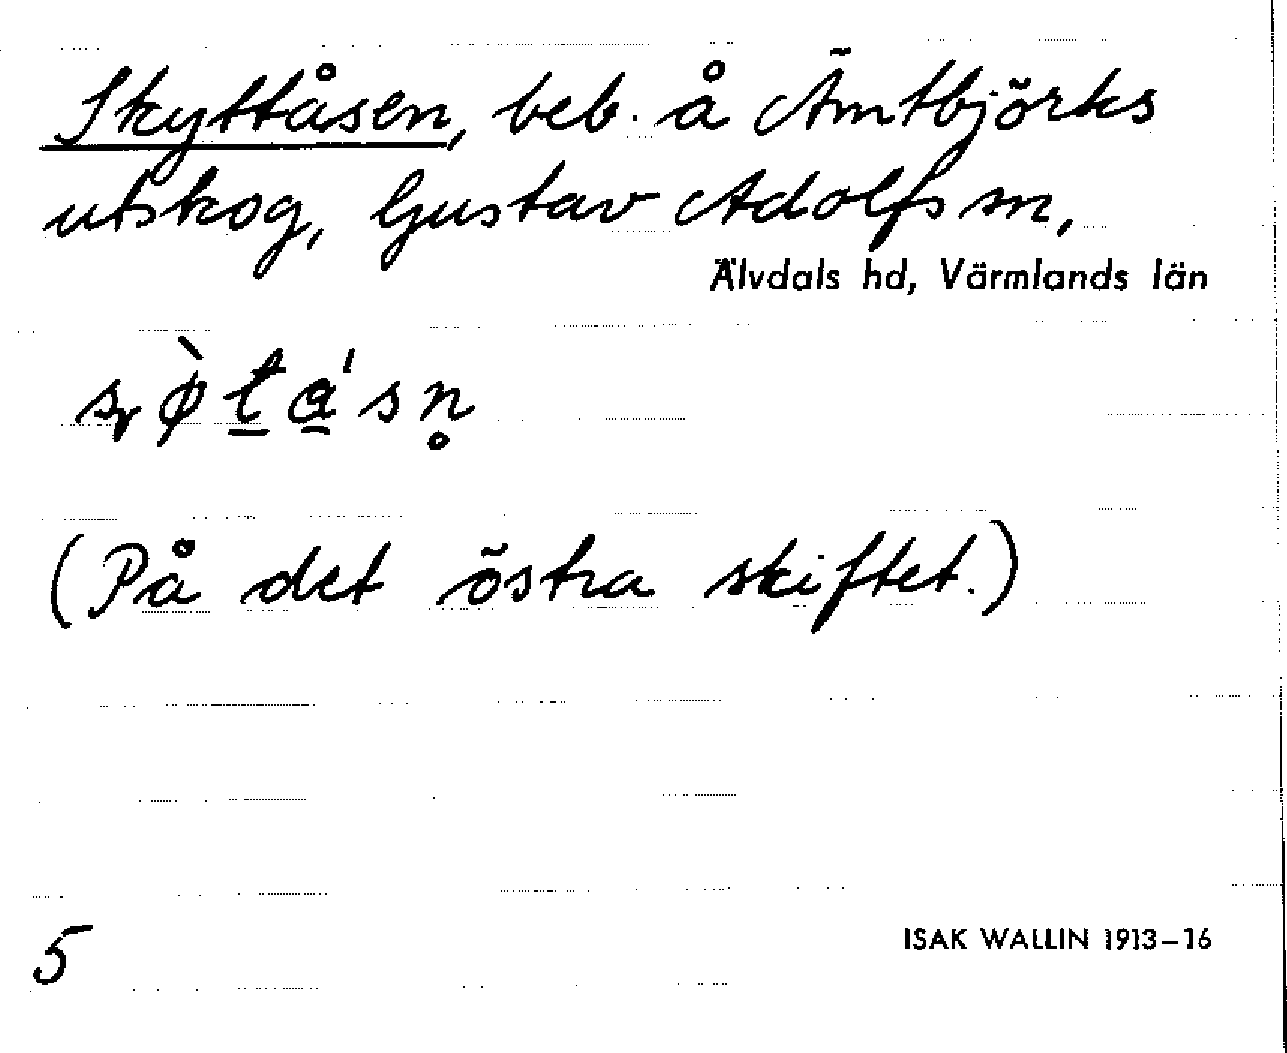 Skyttåsen, beb. å Ämtbjörks
utskog, Gustav Adolfs sn,
Älvdals hd, Värmlands län
(På det östra skiftet.)
5
ISAK WALLIN 1913–16